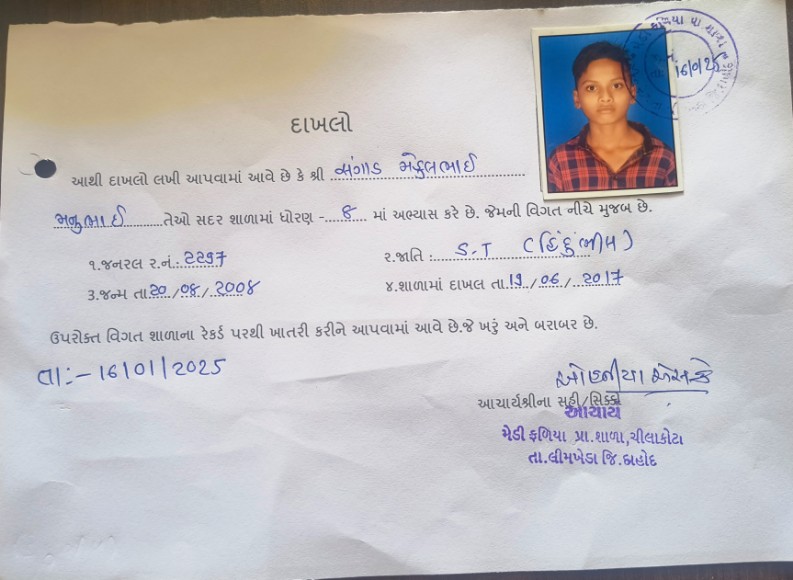 દાખલો
આથી દાખલો લખી આપવામાં આવે છે કે શ્રી સંગાડ મેહુલભાઈ
મનુભાઈ તેઓ સદર શાળામાં ધોરણ - ૮ માં અભ્યાસ કરે છે. જેમની વિગત નીચે મુજબ છે.
૧.જનરલ ર.નં.: ૨૨૭૧ ૨.જાતિ : S.T (હિંદુ ભીલ)
૩.જન્મ તા.20/08/2008 ૪.શાળામાં દાખલ તા.19/06/2017
ઉપરોક્ત વિગત શાળાના રેકર્ડ પરથી ખાતરી કરીને આપવામાં આવે છે.જે ખરું અને બરાબર છે.
તા:-16/01/2025
આચાર્યશ્રીના સહી/સિક્કો
આચાર્ય
મેડી ફળિયા પ્રા.શાળા,ચીલાકોટા
તા.લીમખેડા જિ.દાહોદ